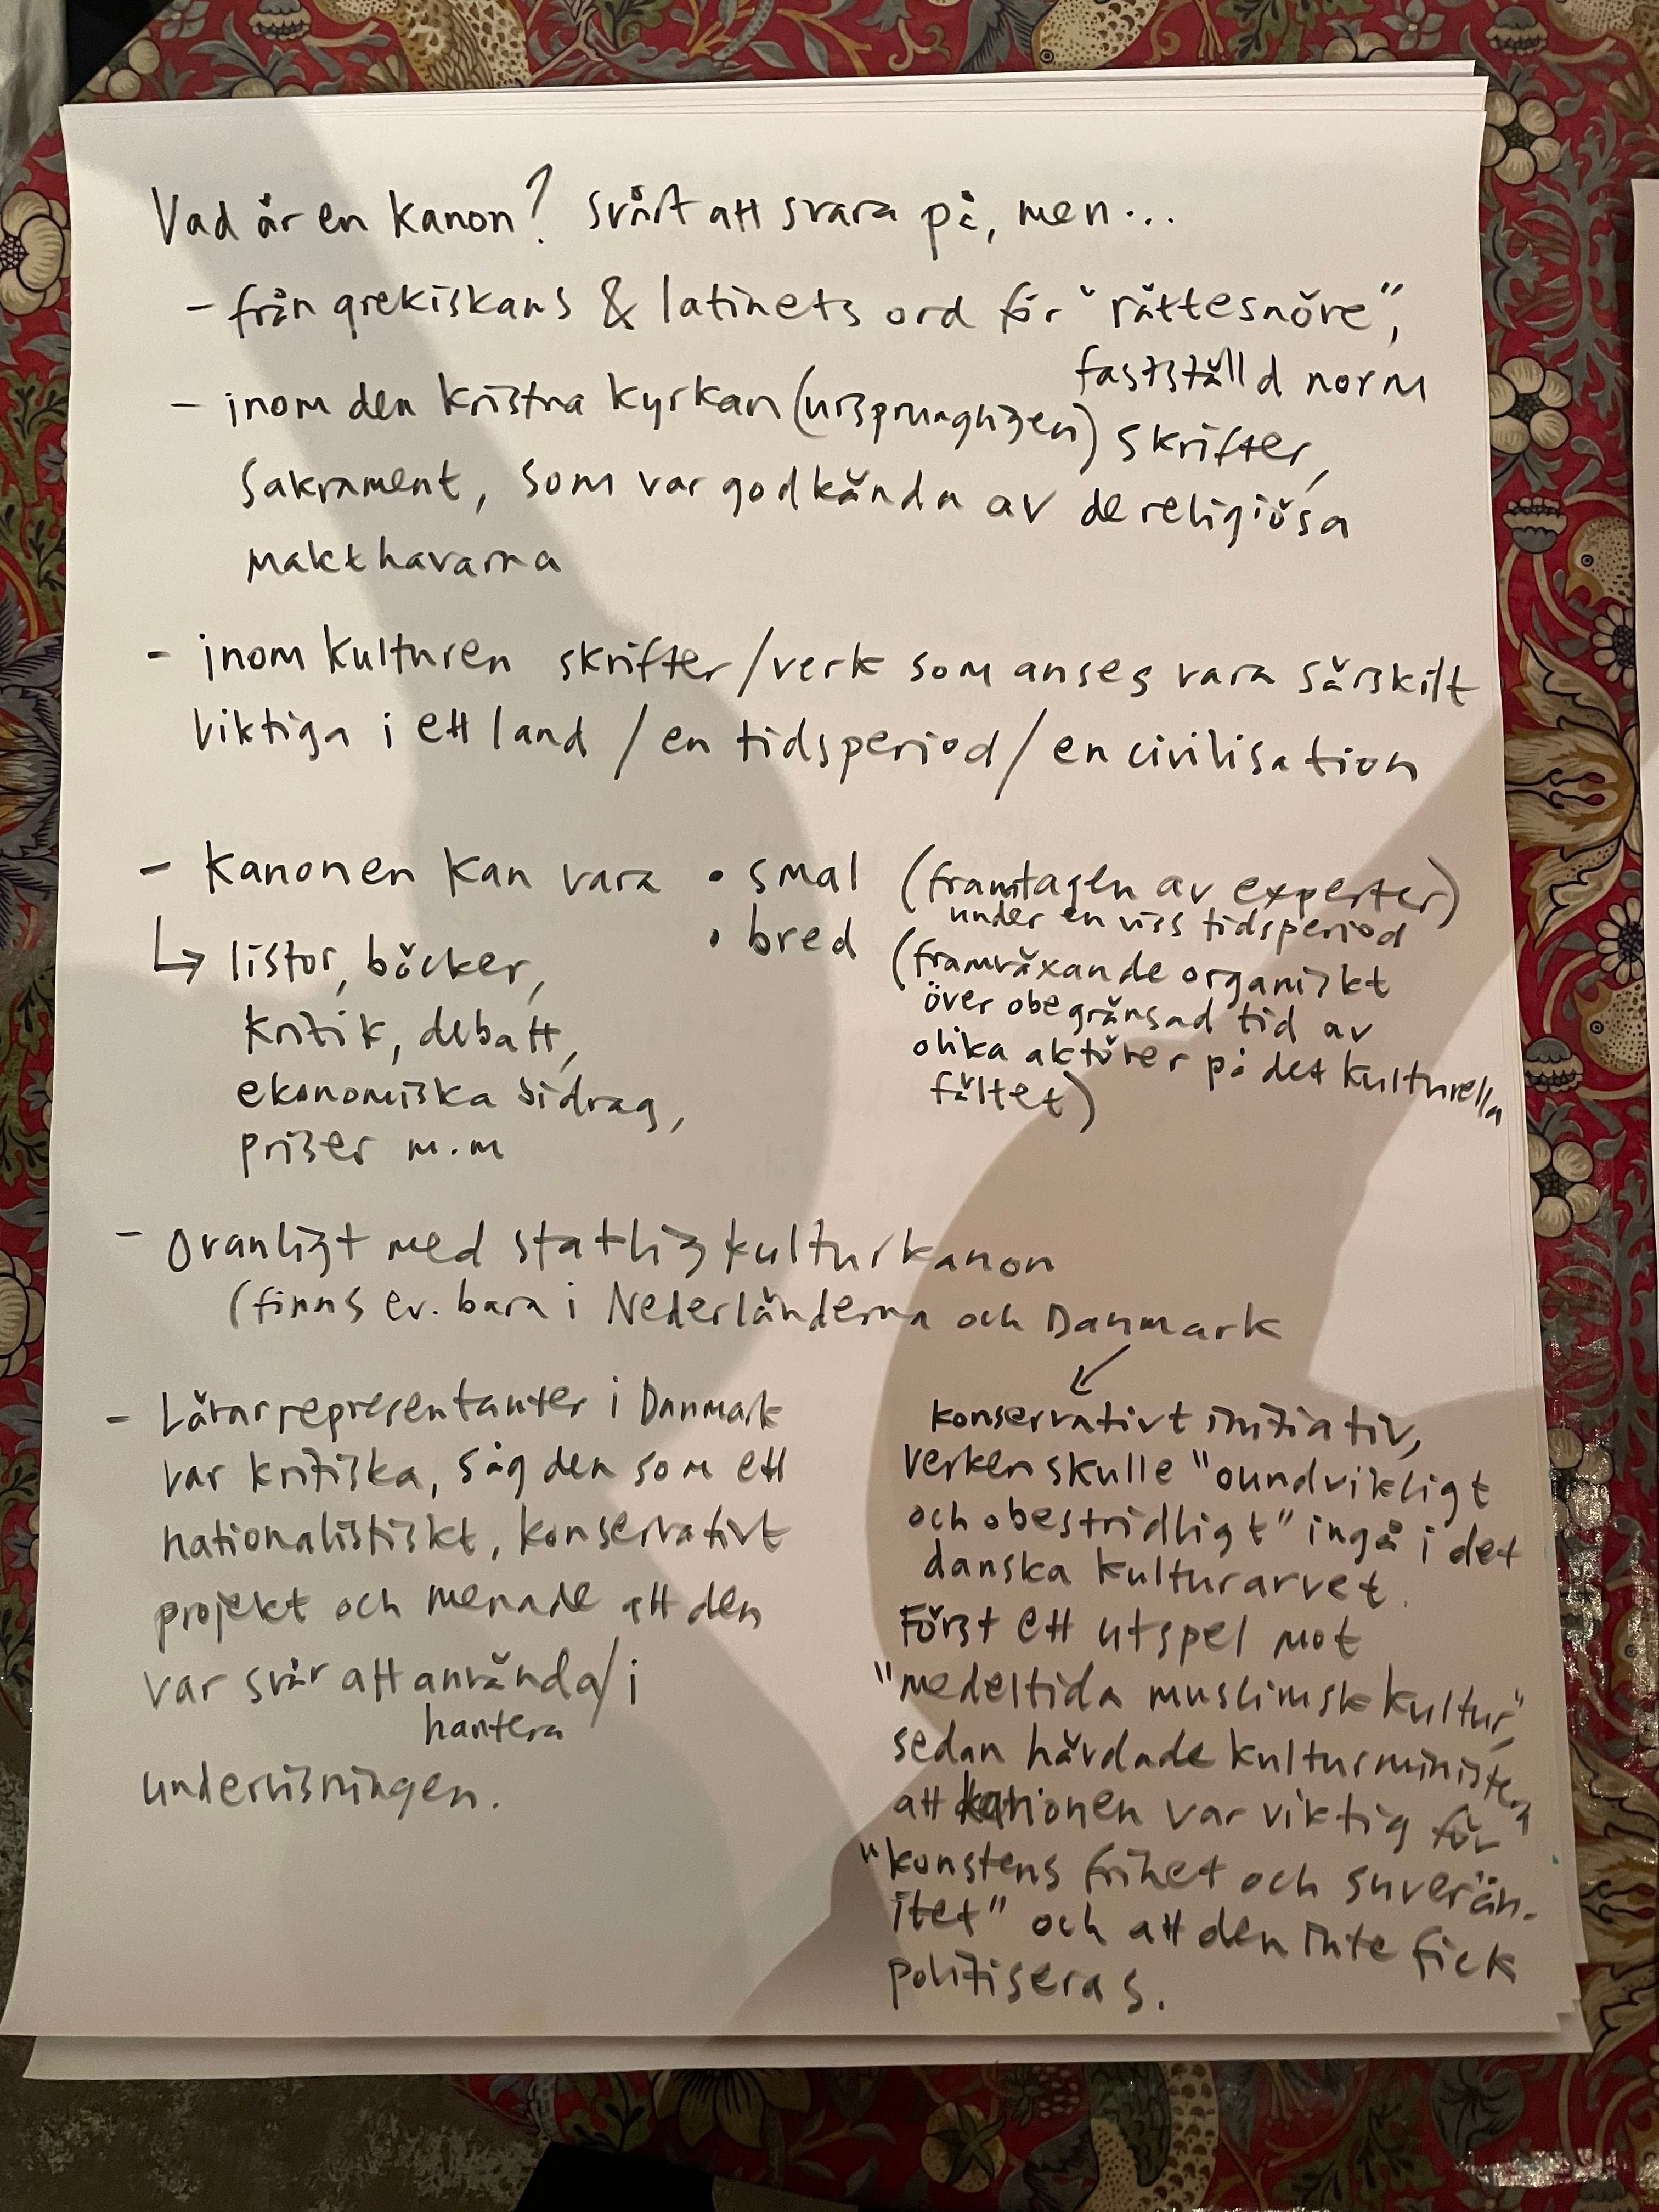 Vad är en kanon? Svårt att svara på, men...
- från grekiskans & latinets ord för "rättesnöre",
fastställd norm
- inom den kristna kyrkan (ursprungligen) skrifter,
sakrament, som var godkända av de religiösa
makthavarna
- inom kulturen skrifter/verk som anses vara särskilt
viktiga i ett land / en tidsperiod / en civilisation
- Kanonen kan vara • smal (framtagen av experter)
under en viss tidsperiod
• bred (framväxande organiskt
över obegränsad tid av
olika aktörer på det kulturella
fältet)
↳ listor, böcker,
kritik, debatt,
ekonomiska bidrag,
priser m.m
- Ovanligt med statlig kulturkanon
(finns ev. bara i Nederländerna och Danmark
↙
konservativt initiativ,
verken skulle "oundvikligt
och obestridligt" ingå i det
danska kulturarvet.
Först ett utspel mot
"medeltida muslimsk kultur",
sedan hävdade kulturministern
att kanonen var viktig för
"konstens frihet och suverän-
itet" och att den inte fick
politiseras.
- Lärarrepresentanter i Danmark
var kritiska, såg den som ett
nationalistiskt, konservativt
projekt och menade att den
var svår att använda/i
hantera
undervisningen.